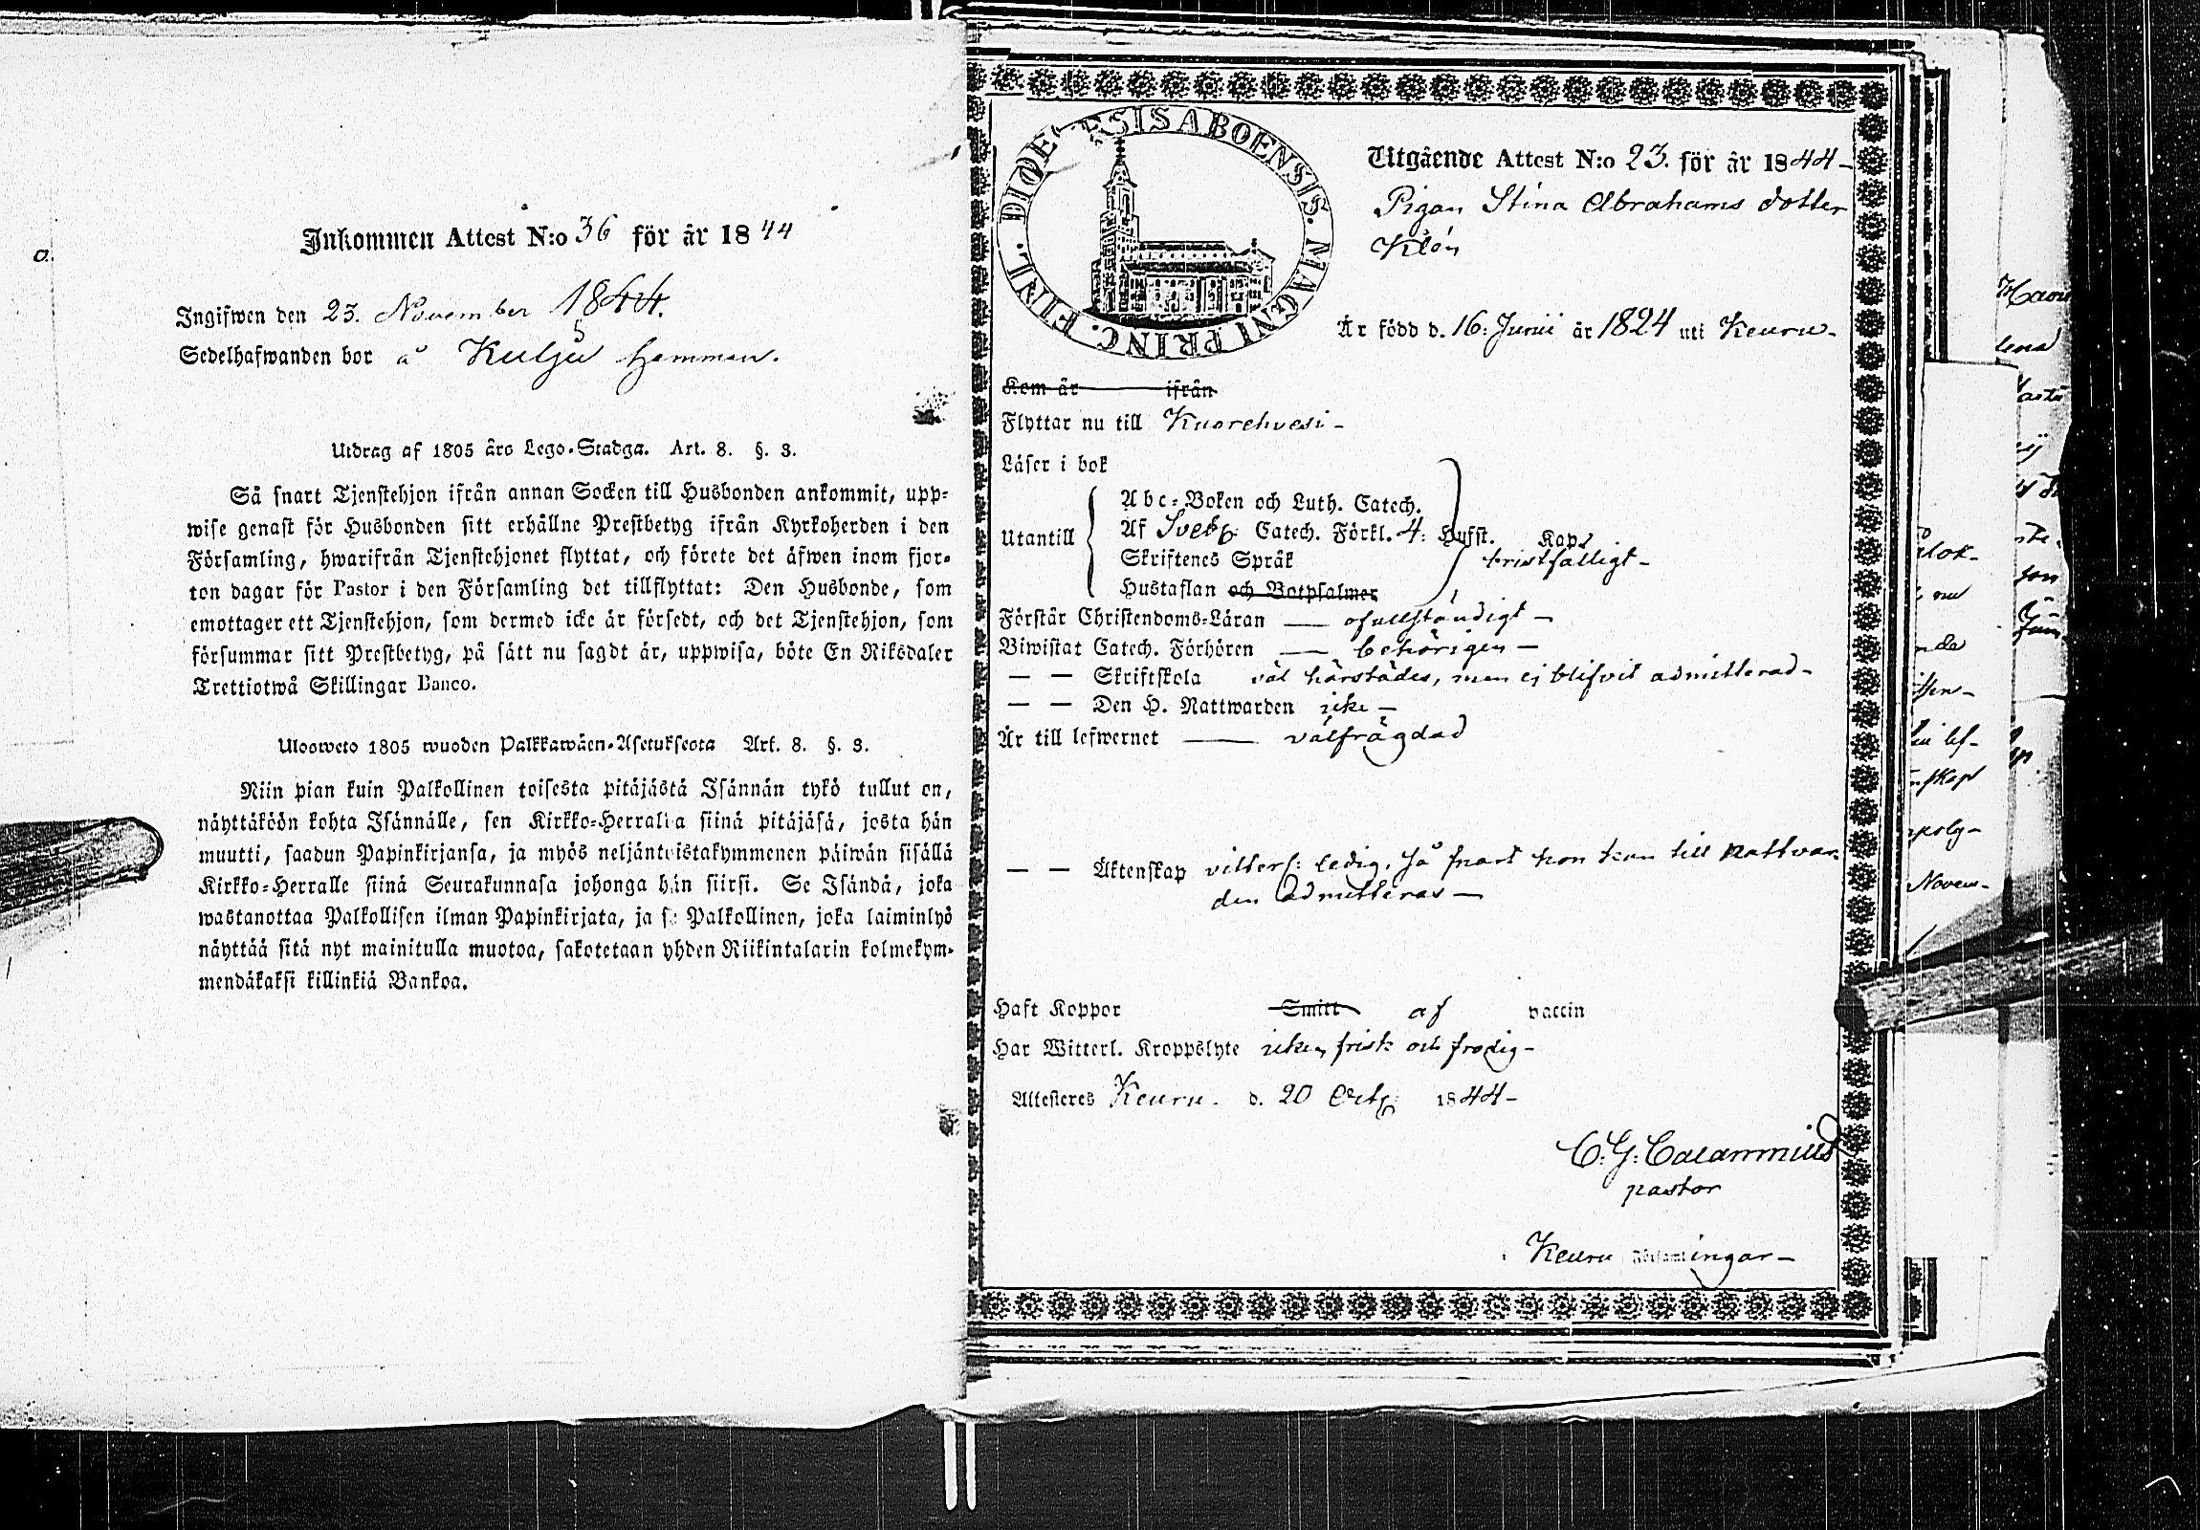 Inkommen Attest N:o 36 för år 1844
Ingifwen den 23. November 1844.
Sedelhafwanden bor å Kulju hemman.
Utdrag af 1805 års Lego-Stadga. Art. 8. §. 3.
Så snart Tjenstehjon ifrån annan Socken till Husbonden ankommit, upp-
wise genast för Husbonden sitt erhållne Prestbetyg ifrån Kyrkoherden i den
Församling, hwarifrån Tjenstehjonet flyttat, och förete det äfwen inom fjor-
ton dagar för Pastor i den Församling det tillflyttat: Den Husbonde, som
emottager ett Tjenstehjon, som dermed icke är försedt, och det Tjenstehjon, som
försummar sitt Prestbetyg, på sätt nu sagdt är, uppwisa, böte En Riksdaler
Trettiotwå Skillingar Banco.
Ulosweto 1805 wuoden Palkkawäen-Asetuksesta Art. 8. §. 3.
Niin pian kuin Palkollinen toisesta pitäjästä Isännän tykö tullut on,
näyttäköön kohta Isännälle, sen Kirkko-Herralta siinä pitäjäsä, josta hän
muutti, saadun Papinkirjansa, ja myös neljäntoistakymmenen päiwän sisällä
Kirkko-Herralle siinä Seurakunnasa johonga hän siirsi. Se Isändä, joka
wastanottaa Palkollisen ilman Papinkirjata, ja se Palkollinen, joka laiminlyö
näyttää sitä nyt mainitulla muotoa, sakotetaan yhden Riikintalarin kolmekym-
mendäkaksi killinkiä Bankoa.
DIOECESIS ABOENSIS. MAGNI PRINC. FINL.
Utgående Attest N:o 23. för år 1844-
Pigan Stina Abrahams dotter
Klön
Är född d. 16: Junii år 1824 uti Keuru-
Kom år ifrån
Flyttar nu till Kuorehvesi-
Läser i bok
Utantill
Abc-Boken och Luth. Catech.
Af Sveb: Catech. Förkl. 4: Hufst. Kap.
Skriftenes Språk
Hustaflan och Botpsalmer
bristfälligt-
Förstår Christendoms-Läran — ofullständigt-
Biwistat Catech. Förhören — behörigen-
— — Skriftskola väl härstädes, men ej blifvit admitterad-
— — Den H. Nattwarden icke-
Är till lefwernet — välfrägdad
— — Äktenskap vitterl: ledig, så snart hon kan till Nattvar
den admitteras-
Haft Koppor Smitt af vaccin
Har Witterl. Kroppslyte icke, frisk och frodig-
Attesteres Keuru. d. 20 Octb: 1844-
C: G: Calamnius
pastor
Keuru Församlingar-